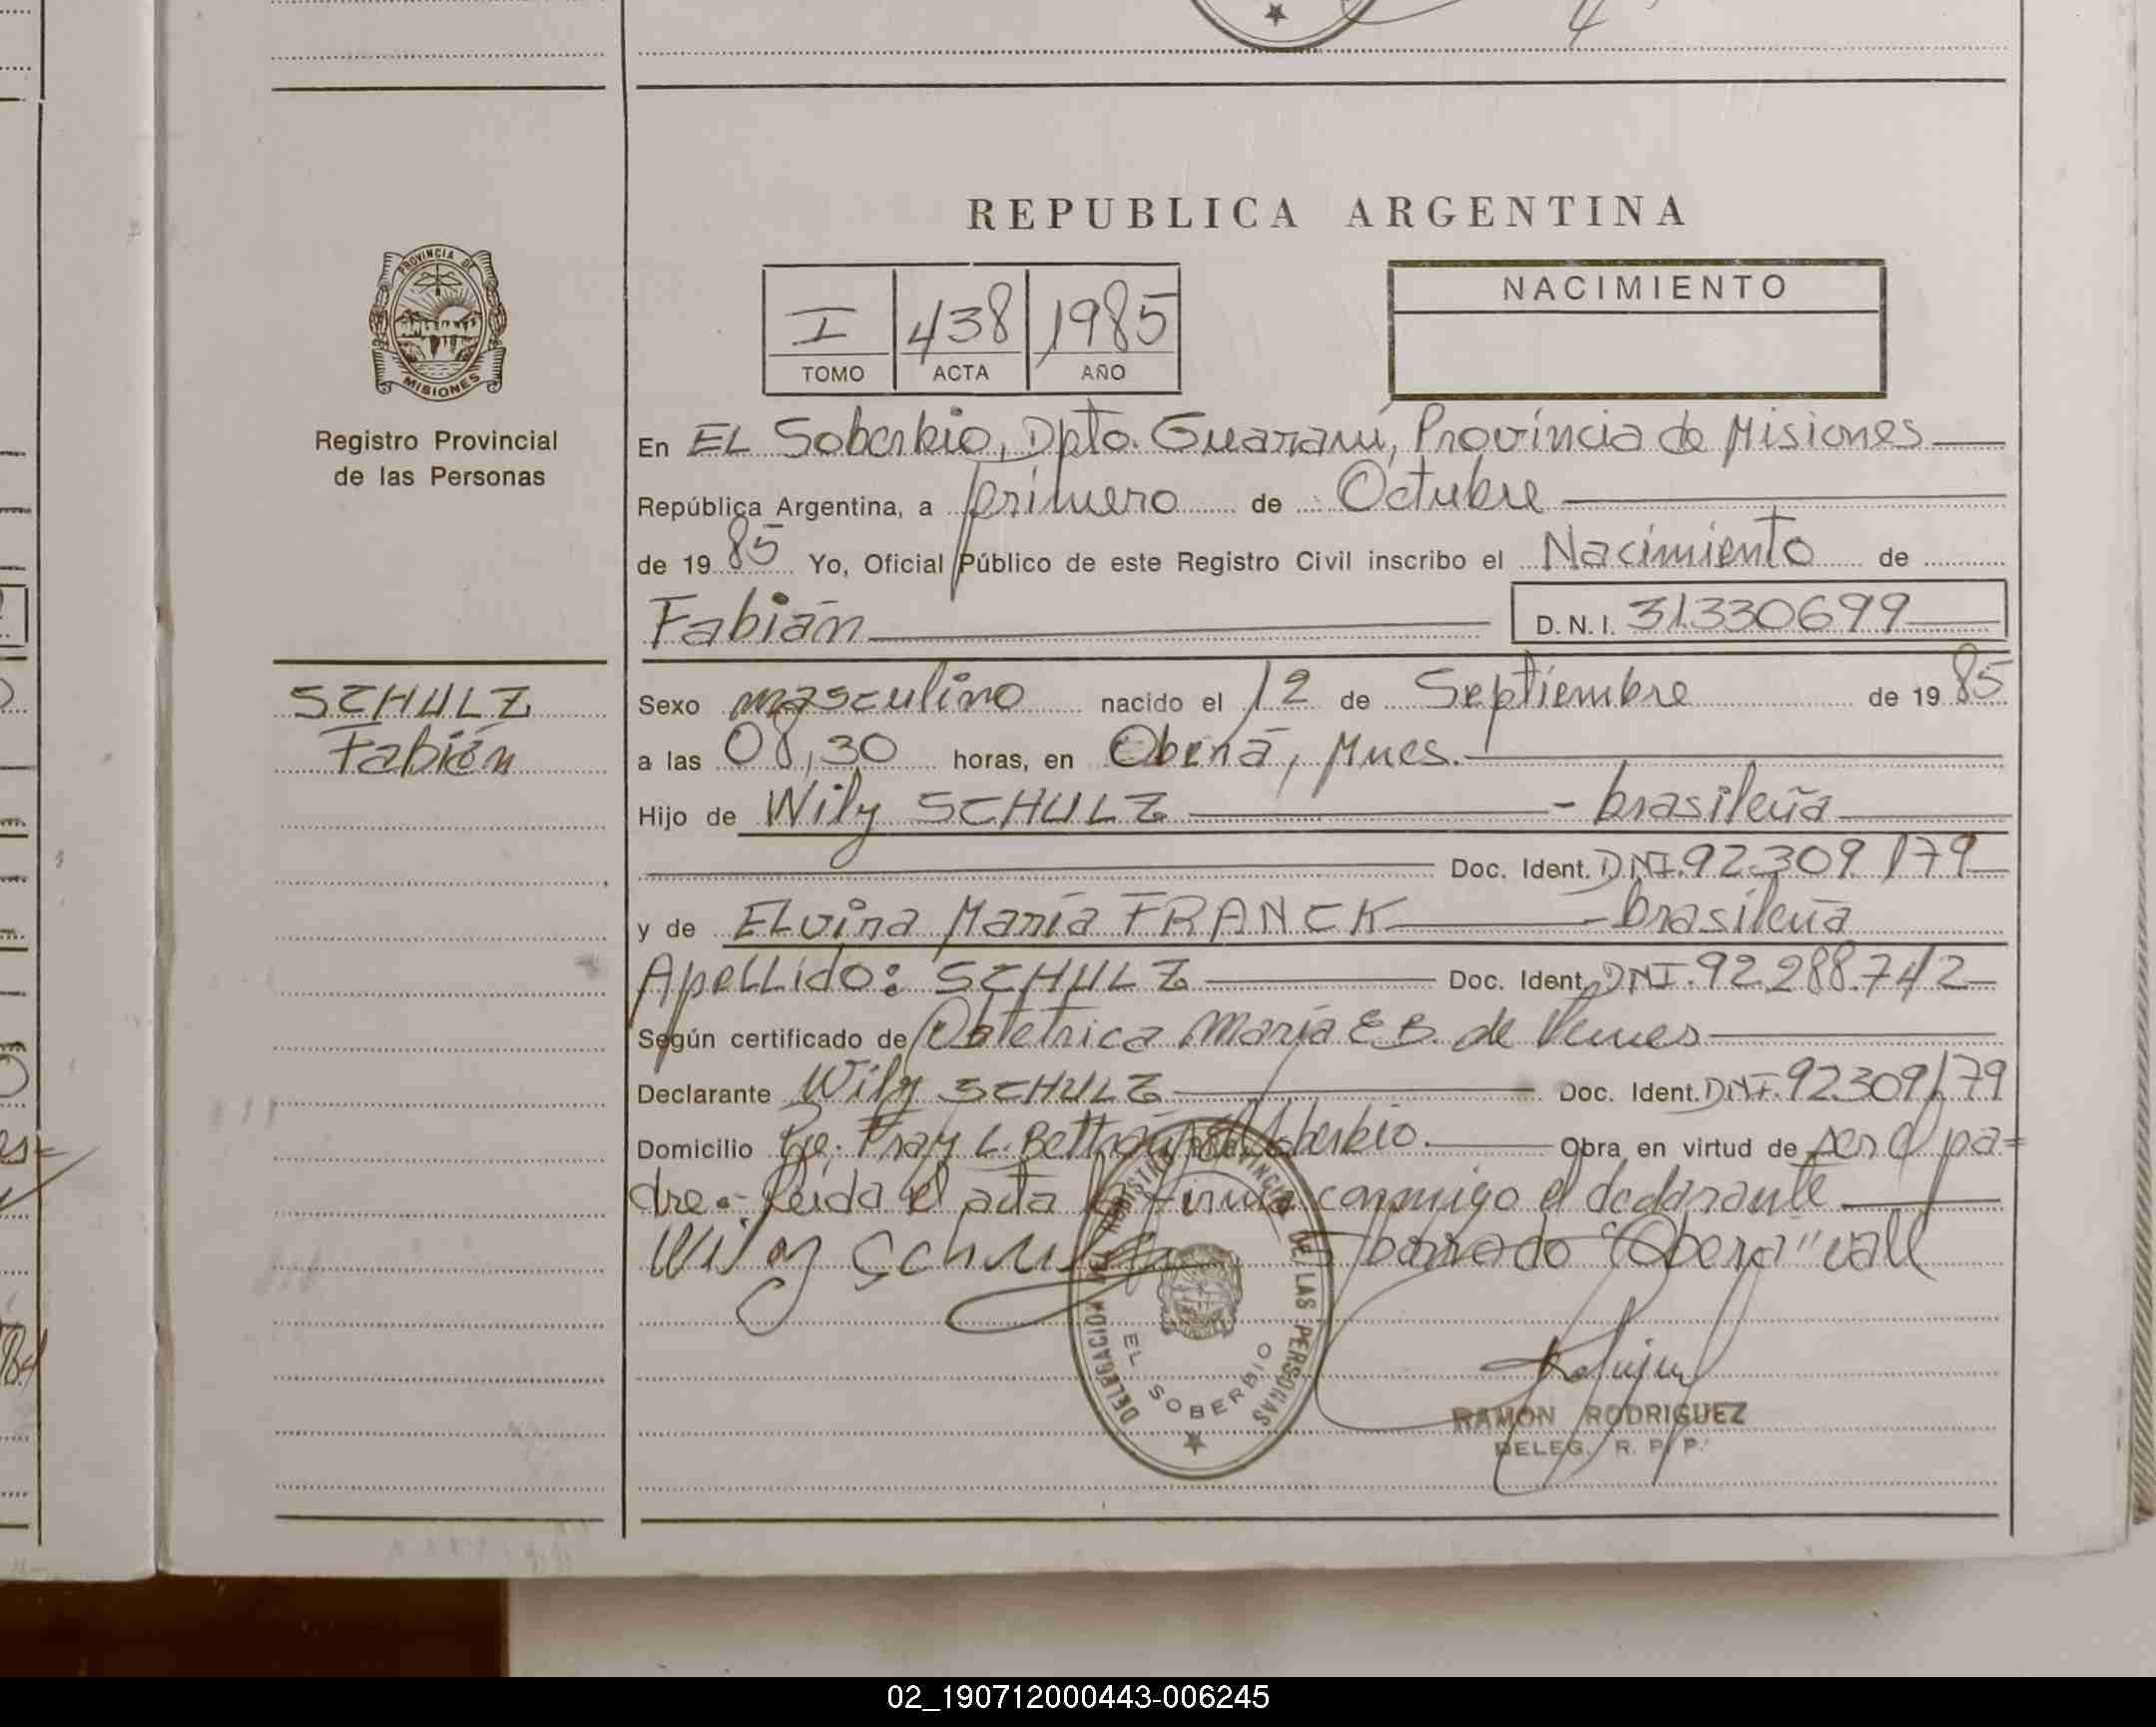 REPUBLICA ARGENTINA
PROVINCIA DE
MISIONES
Registro Provincial
de las Personas
I 438 1985
TOMO ACTA AÑO
NACIMIENTO
En EL Soberbio, Dpto. Guaraní, Provincia de Misiones
República Argentina, a primero de Octubre
de 1985 Yo, Oficial Público de este Registro Civil inscribo el Nacimiento de
Fabián D.N.I. 31330699
SCHULZ
Fabián
Sexo masculino nacido el 12 de Septiembre de 1985
a las 08,30 horas, en Oberá, Mnes.
Hijo de Wily SCHULZ - brasileña
Doc. Ident. DNI. 92.309.179
y de ELvina María FRANCK - brasileña
ApeLLido: SCHULZ Doc. Ident. DNI. 92.288.742
Según certificado de Obtetrica María E B. de
Declarante Wily SCHULZ Doc. Ident. DNI. 92.309.179
Domicilio Fray L. Soberbio. Obra en virtud de ser el pa=
dre.- Leida el acta la firma conmigo el declarante
Wily Schulz borrado "Oberá" vale
DELEGACION DEL REGISTRO PROVINCIAL DE LAS PERSONAS
EL SOBERBIO
RAMON RODRIGUEZ
DELEG. R. P. P.
02_190712000443-006245